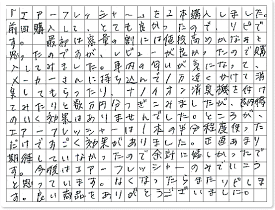 「エアーフレッシャー」を2本購入しました。
前回購入して、とても良かったのでリピです。最初は容量の割には値段高
思ったのですが、レビューが良かったので購
入してみました。車内の匂いが気になって、
メーカーさんに持ち込んで1万近くかけて消
臭してもらったり、ナノイオン消臭機を付け
てみたりと数万円かけてみましたが、長時間
のいい効果はありませんでした。ところが、
エアーフレッシャーは1本の半分程度使った
だけで良い効果がありました。正直あまり
期待していなかったので余計に嬉しかったで
す。今後はエアーフレッシャーのみでいこう
と思っています。なくなったらまたリピしま
す。良い商品をありがとうございました。